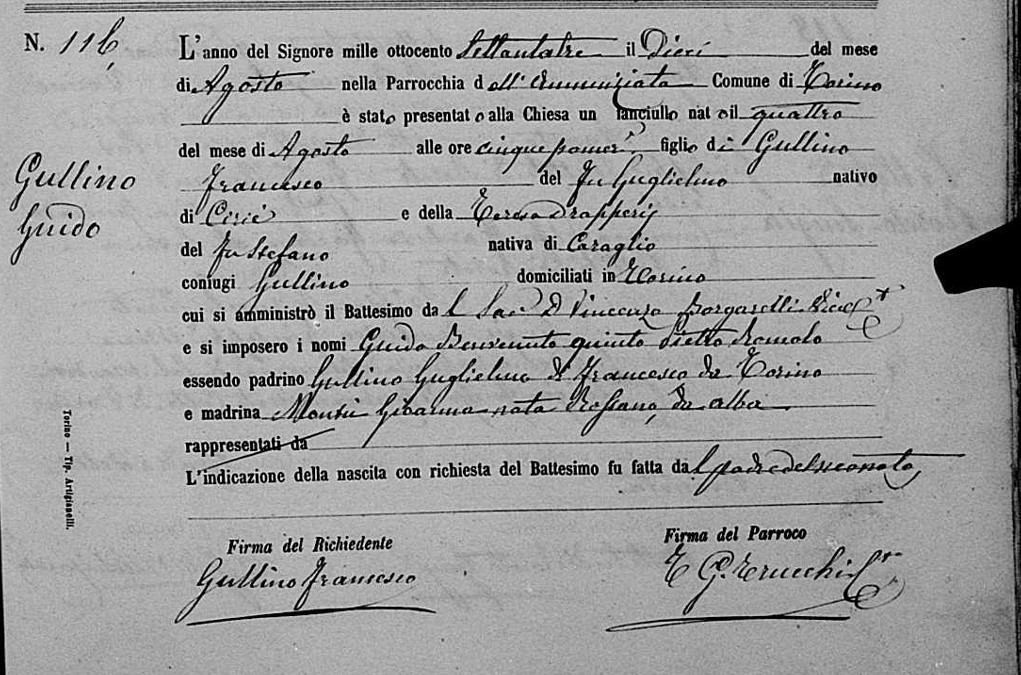 N. 116
L'anno del Signore mille ottocento Settantatre il Dieci del mese
di Agosto nella Parrocchia dell'Annunziata Comune di Torino
è stato presentato alla Chiesa un fanciullo nato il quattro
del mese di Agosto alle ore cinque pomer. figlio di Gullino
Francesco del fu Guglielmo nativo
di Ciriè e della Teresa Drapperis
del fu Stefano nativa di Caraglio
coniugi Gullino domiciliati in Torino
cui si amministrò il Battesimo dal Sac. D Vincenzo Borgarelli Vice
e si imposero i nomi Guido Benvenuto quinto Pietro Romolo
essendo padrino Gullino Guglielmo di Francesco da Torino
e madrina Monsù Giovanna nata Rossano da Alba
rappresentati da
L'indicazione della nascita con richiesta del Battesimo fu fatta dal padre del neonato
Gullino
Guido
Torino — Tip. Artigianelli.
Firma del Richiedente
Gullino Francesco
Firma del Parroco